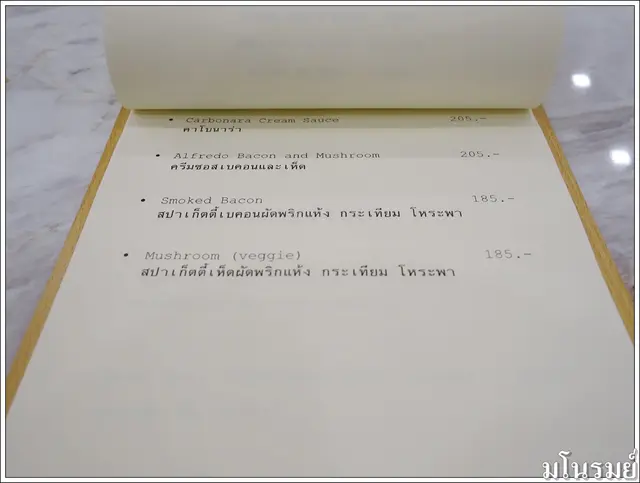 • Carbonara Cream Sauce 205.-
คาโบนาร่า
• Alfredo Bacon and Mushroom 205.-
ครีมซอสเบคอนและเห็ด
• Smoked Bacon 185.-
สปาเก็ตตี้เบคอนผัดพริกแห้ง กระเทียม โหระพา
• Mushroom (veggie) 185.-
สปาเก็ตตี้เห็ดผัดพริกแห้ง กระเทียม โหระพา
มโนรมย์